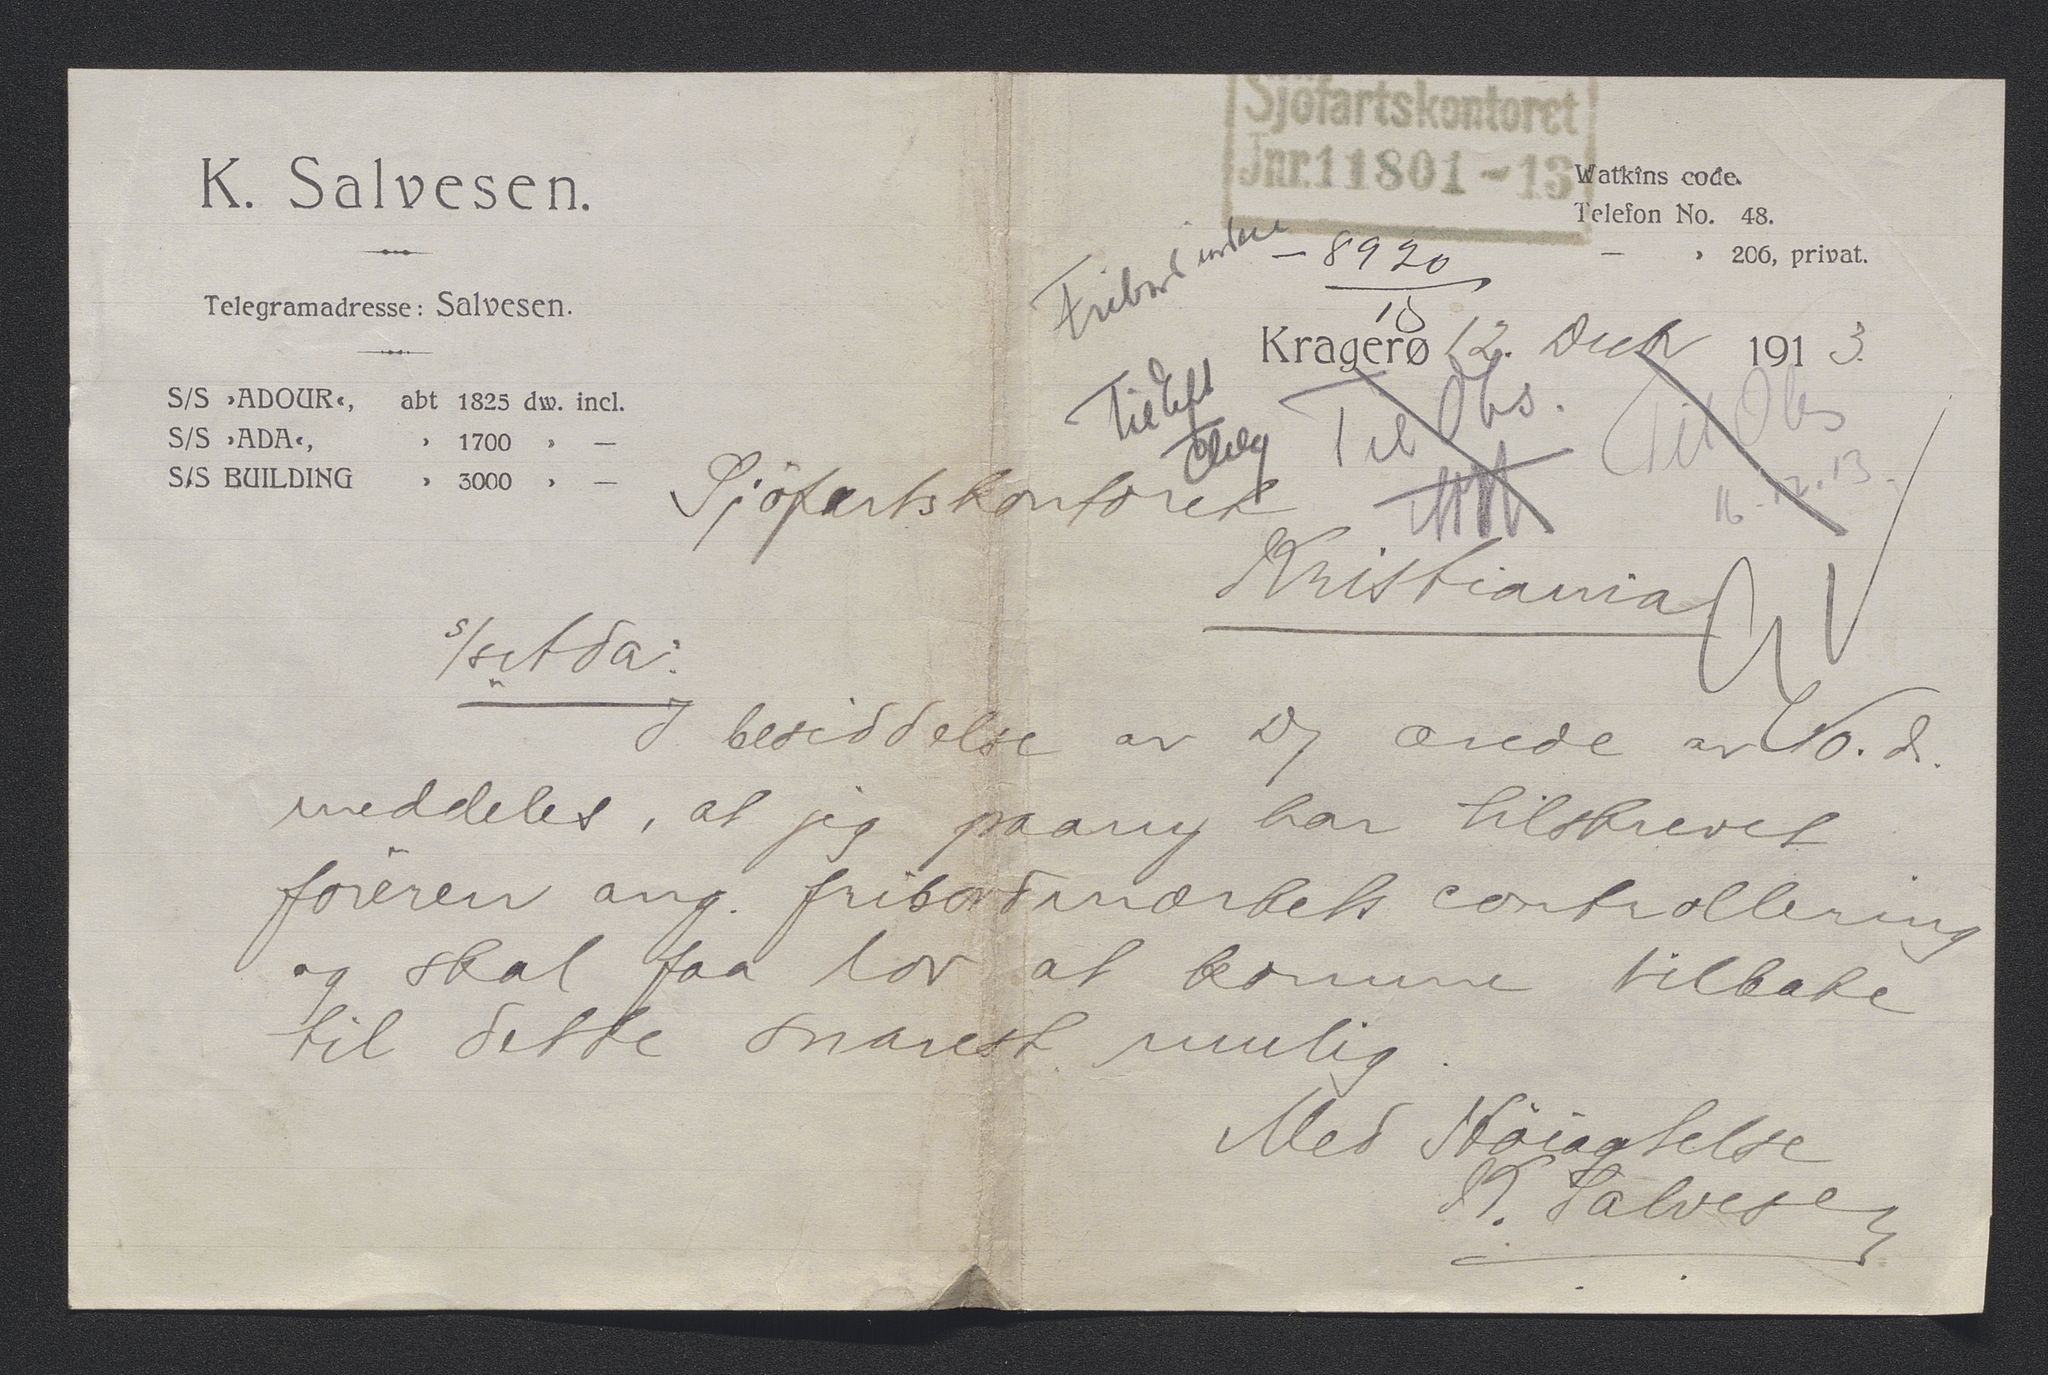 Sjöfartskontoret
Jnr. 11801 - 13
K. Salvesen.
Watkins code.
Telefon No. 48.
— › 206, privat.
Telegramadresse: Salvesen.
— 8920
13
Kragerø 12. Decbr 1913.
S/S ›ADOUR‹, abt 1825 dw. incl.
S/S ›ADA‹, › 1700 › —
S/S BUILDING › 3000 › —
Til Obs.
Til Obs
16-12.13.
Sjöfartskontoret
Kristiania
s/s Ada:
I besiddelse av Dj ærede av 10. ds.
meddeles, at jeg paany har tilskrevet
föreren ang. fribordmærkets controllering
og skal faa lov at komme tilbake
til dette snarest mulig.
Med Höiagtelse
K. Salvesen